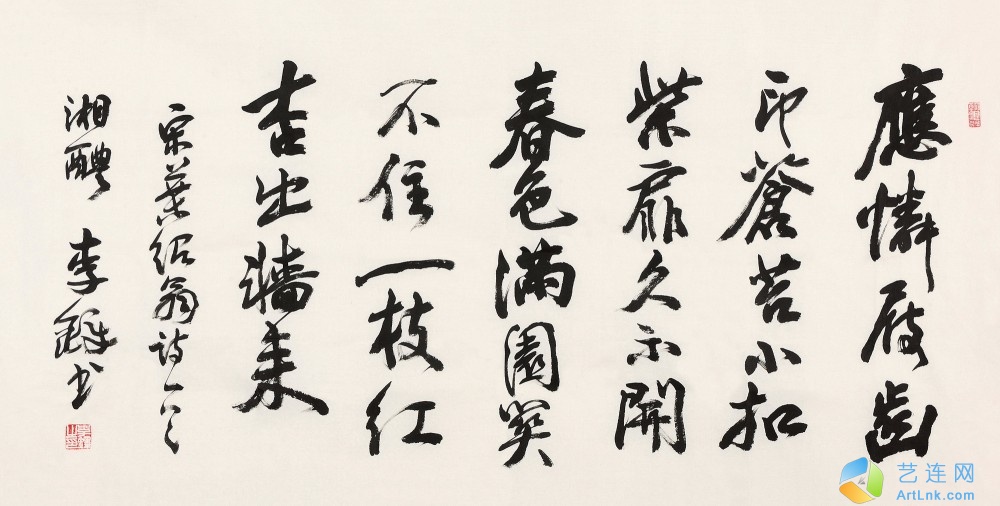 應憐屐齒
印蒼苔小扣
柴扉久不開
春色滿園关
不住一枝红
杏出牆来
宋葉绍翁诗一首
湘醴 李鐸书
艺连网
ArtLnk.com